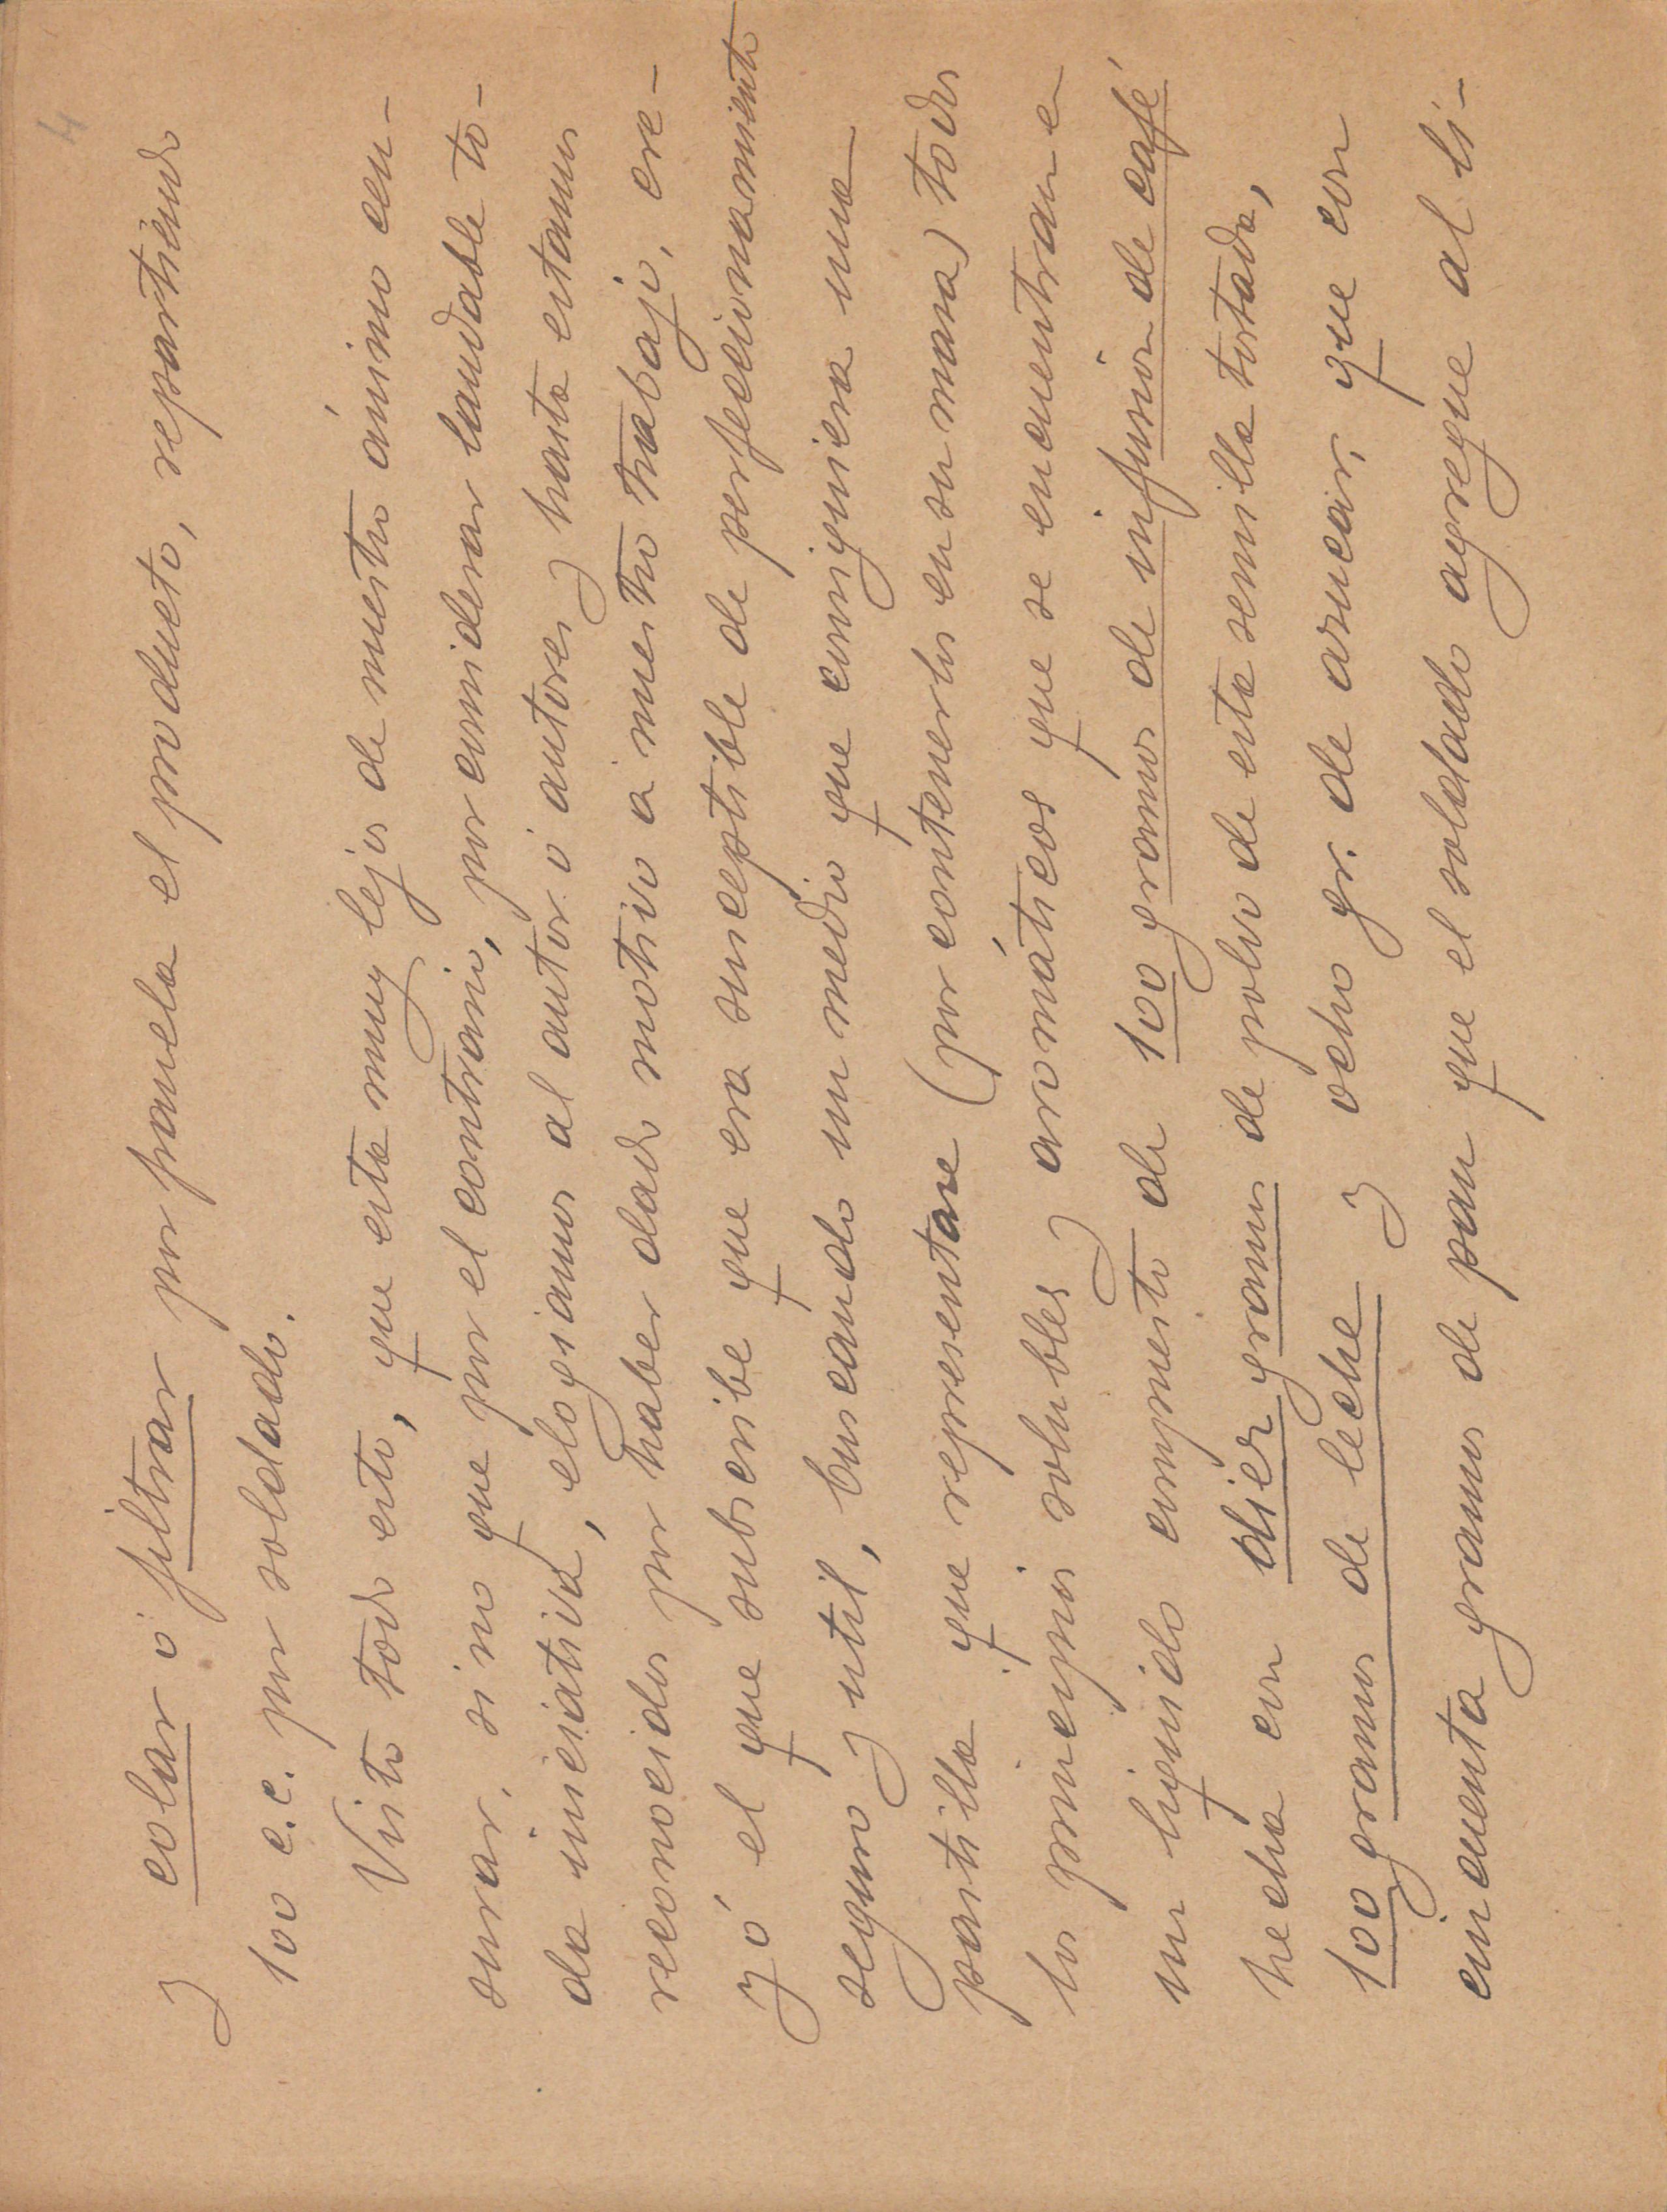 4
y colar ó filtrar por franela el producto, repartiendo
100 c.c. por soldado.
Visto todo esto, que esta muy lejos de nuestro ánimo cen-
surar, sino que por el contrario, por considerar laudable to-
da iniciativa, elogiamos al autor ó autores y hasta estamos
reconocidos por haber dado motivo á nuestro trabajo, cre-
yó el que subscribe que era susceptible de perfeccionamiento
seguro y util, buscando un medio que consiguiera una
pastilla que representase (por contenerlos en su masa) todos
los principios solubles y aromáticos que se encuentran en
un liquido compuesto de 100 gramos de infusión de café
hecha con diez gramos de polvo de esta semilla tostada,
100 gramos de leche y ocho gr. de azucar, que con
cincuenta gramos de pan que el soldado agregue al lí-